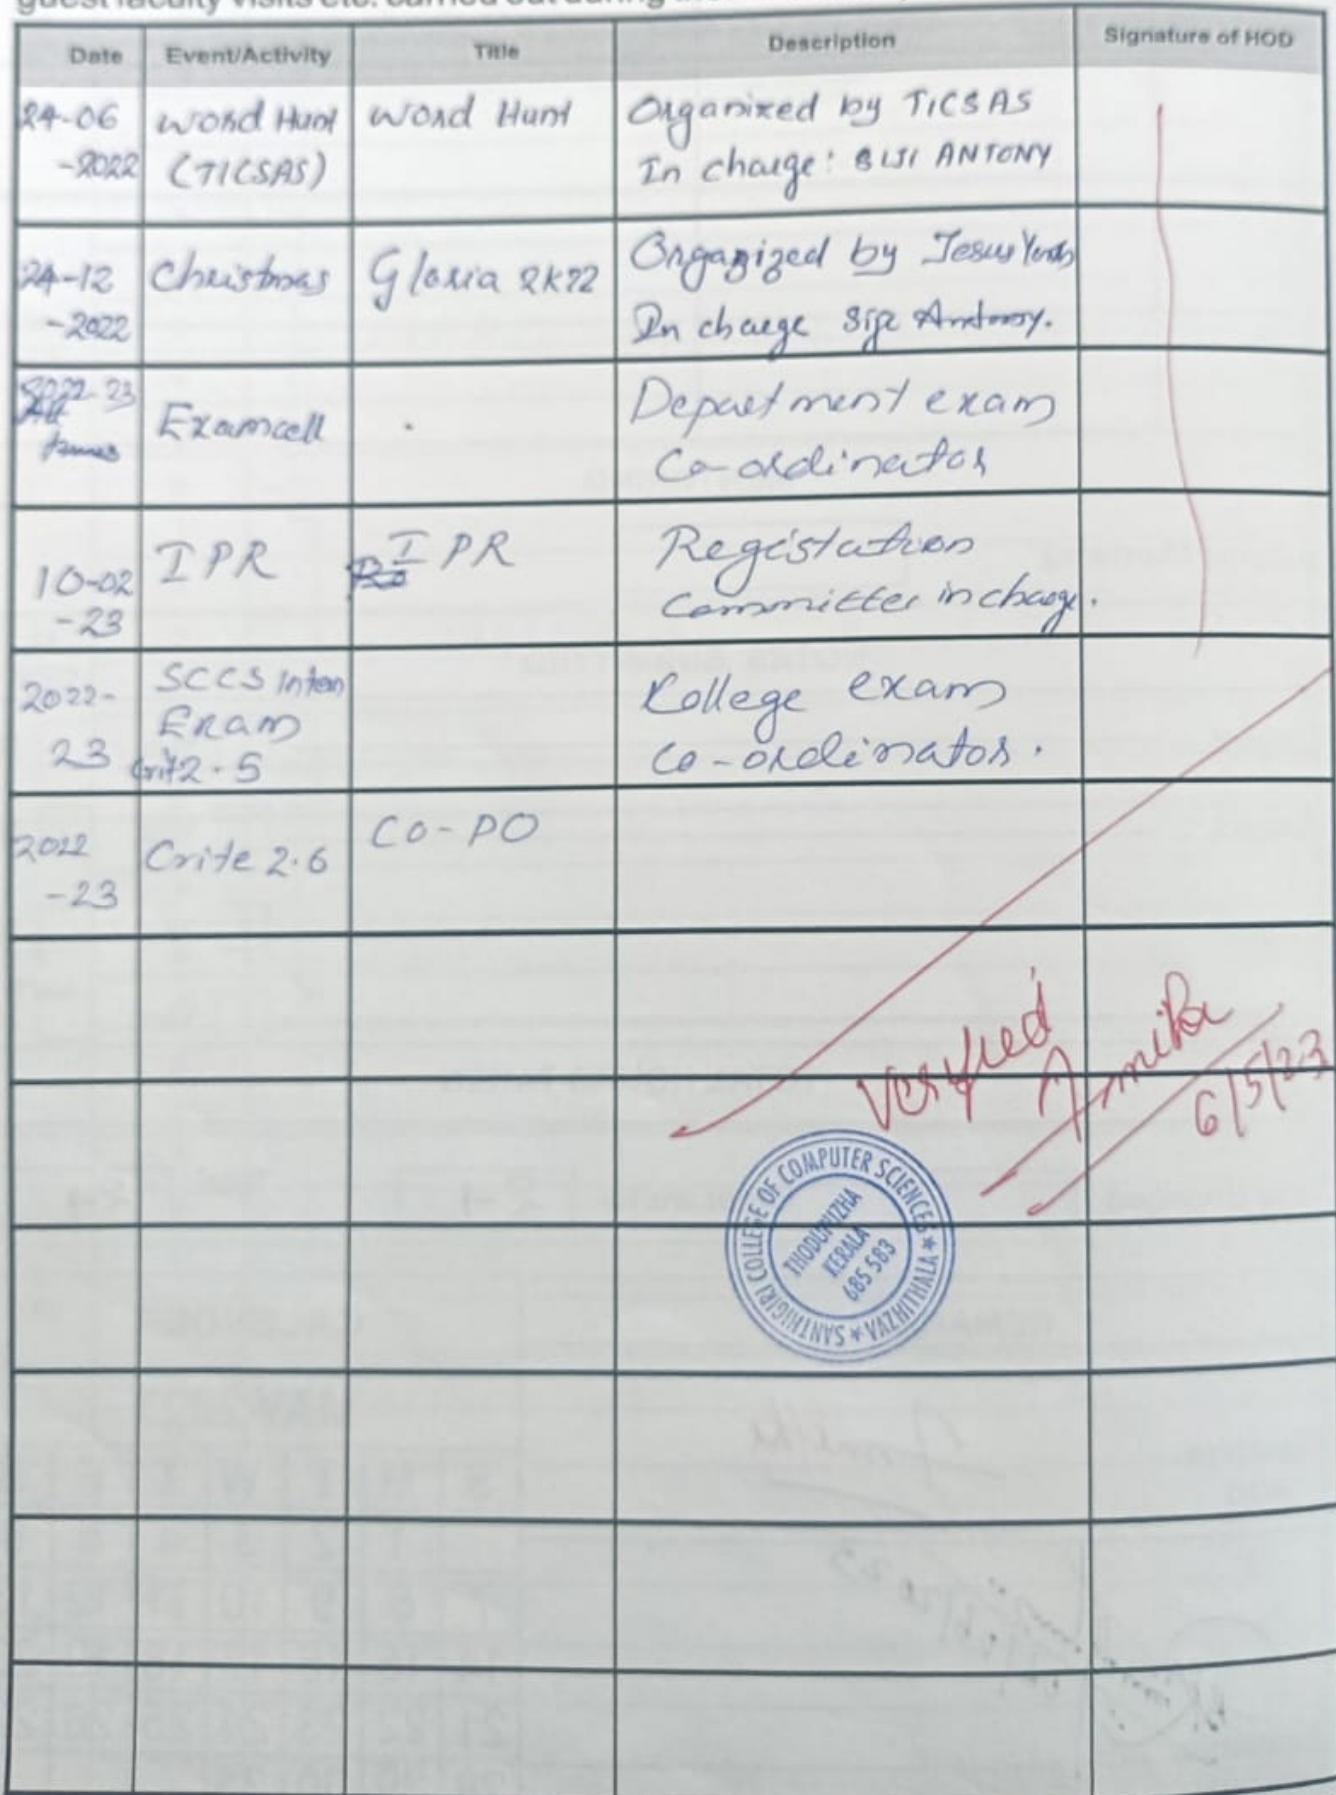 guest faculty visits etc. carried out during the
Date Event/Activity Title Description Signature of HOD
24-06 Word Hunt Word Hunt Organized by TICSAS
-2022 (TICSAS) In charge: BIJI ANTONY
24-12 Christmas Gloria 2K22 Organized by Jesus Youth
-2022 In charge Antony.
2022-23 Examcell Department exam
Co-ordinator
10-02 IPR IPR Registation
-23 Committee incharge.
2022- SCCS Intern College exam
23 Exam Co-ordinator.
Crit 2.5
2022 Crite 2.6 CO-PO
-23
Verified
6/5/23
SANTHIGIRI COLLEGE OF COMPUTER SCIENCES * VAZHITHALA *
THODUPUZHA
KERALA
685 583